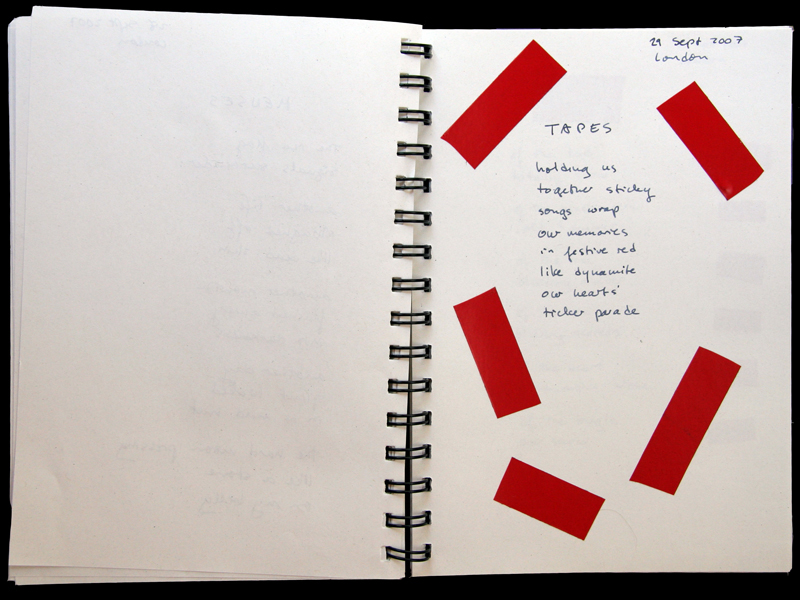 29 Sept 2007
London
TAPES
holding us
together sticky
songs wrap
our memories
in festive red
like dynamite
our hearts'
ticker parade